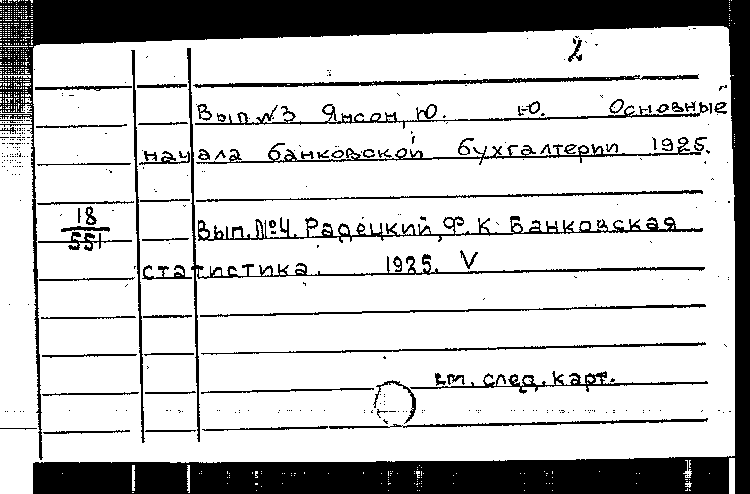 2
Вып №3 Янсон, Ю. Ю. Основные
начала банковской бухгалтерии 1925.
18
551
Вып. №4. Радецкий, Ф. К. Банковская
статистика. 1925. V
см. след. карт.